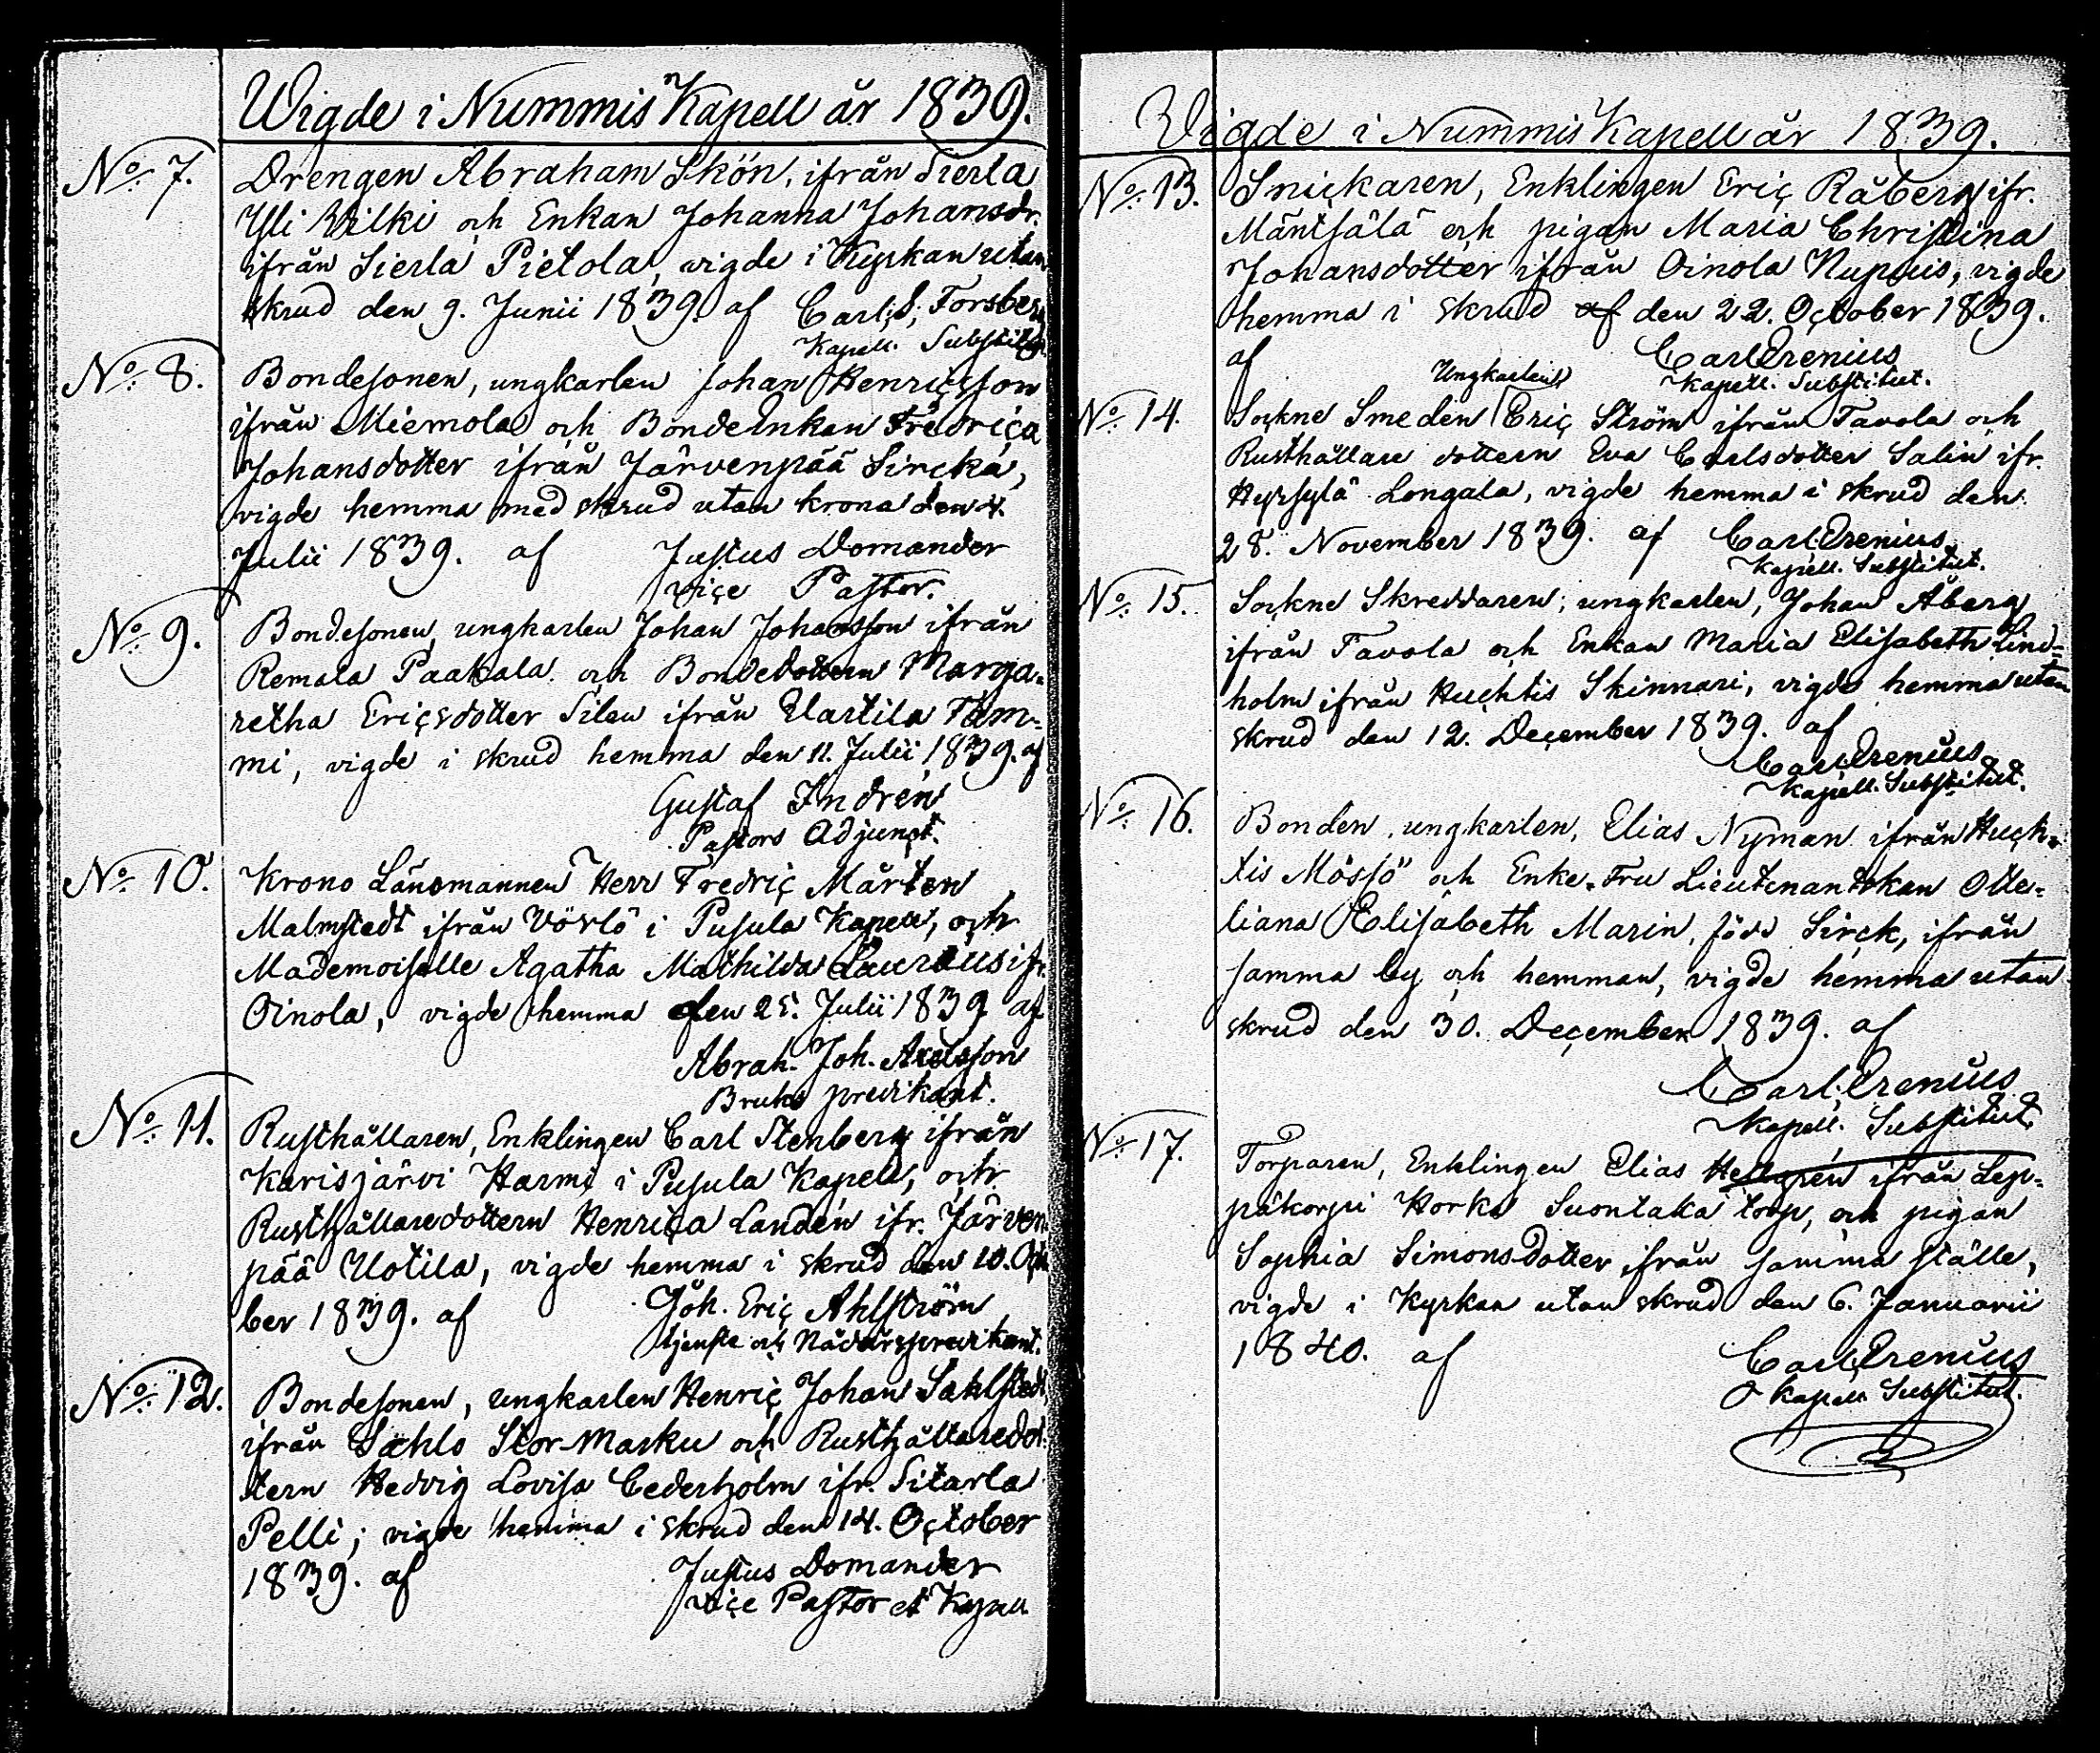 Wigde i Nummis Kapell år 1839.
No: 7. Drengen Abraham Skön, ifrån Sierla
Yli Vilki och Enkan Johanna Johansdr.
ifrån Sierla Pietola, vigde i Kyrkan utan
skrud den 9. Junii 1839. af Carl S. Forsberg
Kapell. Substitut
No: 8. Bondesonen, ungkarlen Johan Henricsson
ifrån Miemola och BondeEnkan Fredrica
Johansdotter ifrån Järvenpää Sircka,
vigde hemma med skrud utan krona den 4.
Julii 1839. af Justus Domander
vice Pastor.
No: 9. Bondesonen, ungkarlen Johan Johansson ifrån
Remala Paakala och Bondedottern Marga=
retha Ericsdotter Silen ifrån Vartila Tam=
mi, vigde i skrud hemma den 11. Julii 1839. af
Gustaf Indrén
Pastors Adjunct.
No: 10. Krono Länsmannen Herr Fredric Mårten
Malmstedt ifrån Vörlö i Pusula Kapell, och
Mademoiselle Agatha Mathilda Lauræus ifr.
Oinola, vigde hemma den 25. Julii 1839 af
Abrah. Joh. Axelsson
Bruks predikant.
No: 11. Rusthållaren, Enklingen Carl Stenberg ifrån
Karisjärvi Harmi i Pusula Kapell, och
Rusthållaredottern Henrica Landén ifr. Järven
pää Uotila, vigde hemma i skrud den 10. Octo
ber 1839. af Joh. Eric Ahlström
tjenste och Nådårspredikant.
No: 12. Bondesonen, ungkarlen Henric Johan Sahlstedt
ifrån Sahls Stor-Marku och Rusthållaredot
tern Hedvig Lovisa Cederholm ifr. Sitarla
Pelli; vigde hemma i skrud den 14. October
1839. af Justus Domander
vice Pastor et
Vigde i Nummis Kapell år 1839.
No: 13. Snickaren, Enklingen Eric Råberg ifr.
Mäntsälä och pigan Maria Christina
Johansdotter ifrån Oinola Nuppuis, vigde
hemma i skrud af den 22. October 1839.
af Carl Orenius
Kapell. Substitut.
Ungkarlen
No: 14. Sockne Smeden Eric Ström ifrån Tavola och
Rusthållare dottern Eva Carlsdotter Salin ifr.
Hyrsylä Longala, vigde hemma i skrud den
28. November 1839. af Carl Orenius
Kapell. Substitut.
No: 15. Sockne Skreddaren; ungkarlen, Johan Åberg
ifrån Tavola och Enkan Maria Elisabeth Lind=
holm ifrån Huchtis Skinnari, vigde hemma utan
skrud den 12. December 1839. af
Carl Orenius
Kapell. Substitut.
No: 16. Bonden, ungkarlen, Elias Nyman ifrån Huch=
tis Mössö och Enke-Fru Lieutenantskan Otte=
liana Elisabeth Marin, född Sirck, ifrån
samma by och hemman, vigde hemma utan
skrud den 30. December 1839. af
Carl Orenius
Kapell. Substitut.
No: 17. Torparen, Enklingen Elias Hellgrén ifrån Lep=
päkorpi Horko Suontaka torp, och pigan
Sophia Simonsdotter ifrån samma ställe,
vigde i Kyrkan utan skrud den 6. Januarii
1840. af Carl Orenius
Kapell. Substitut.